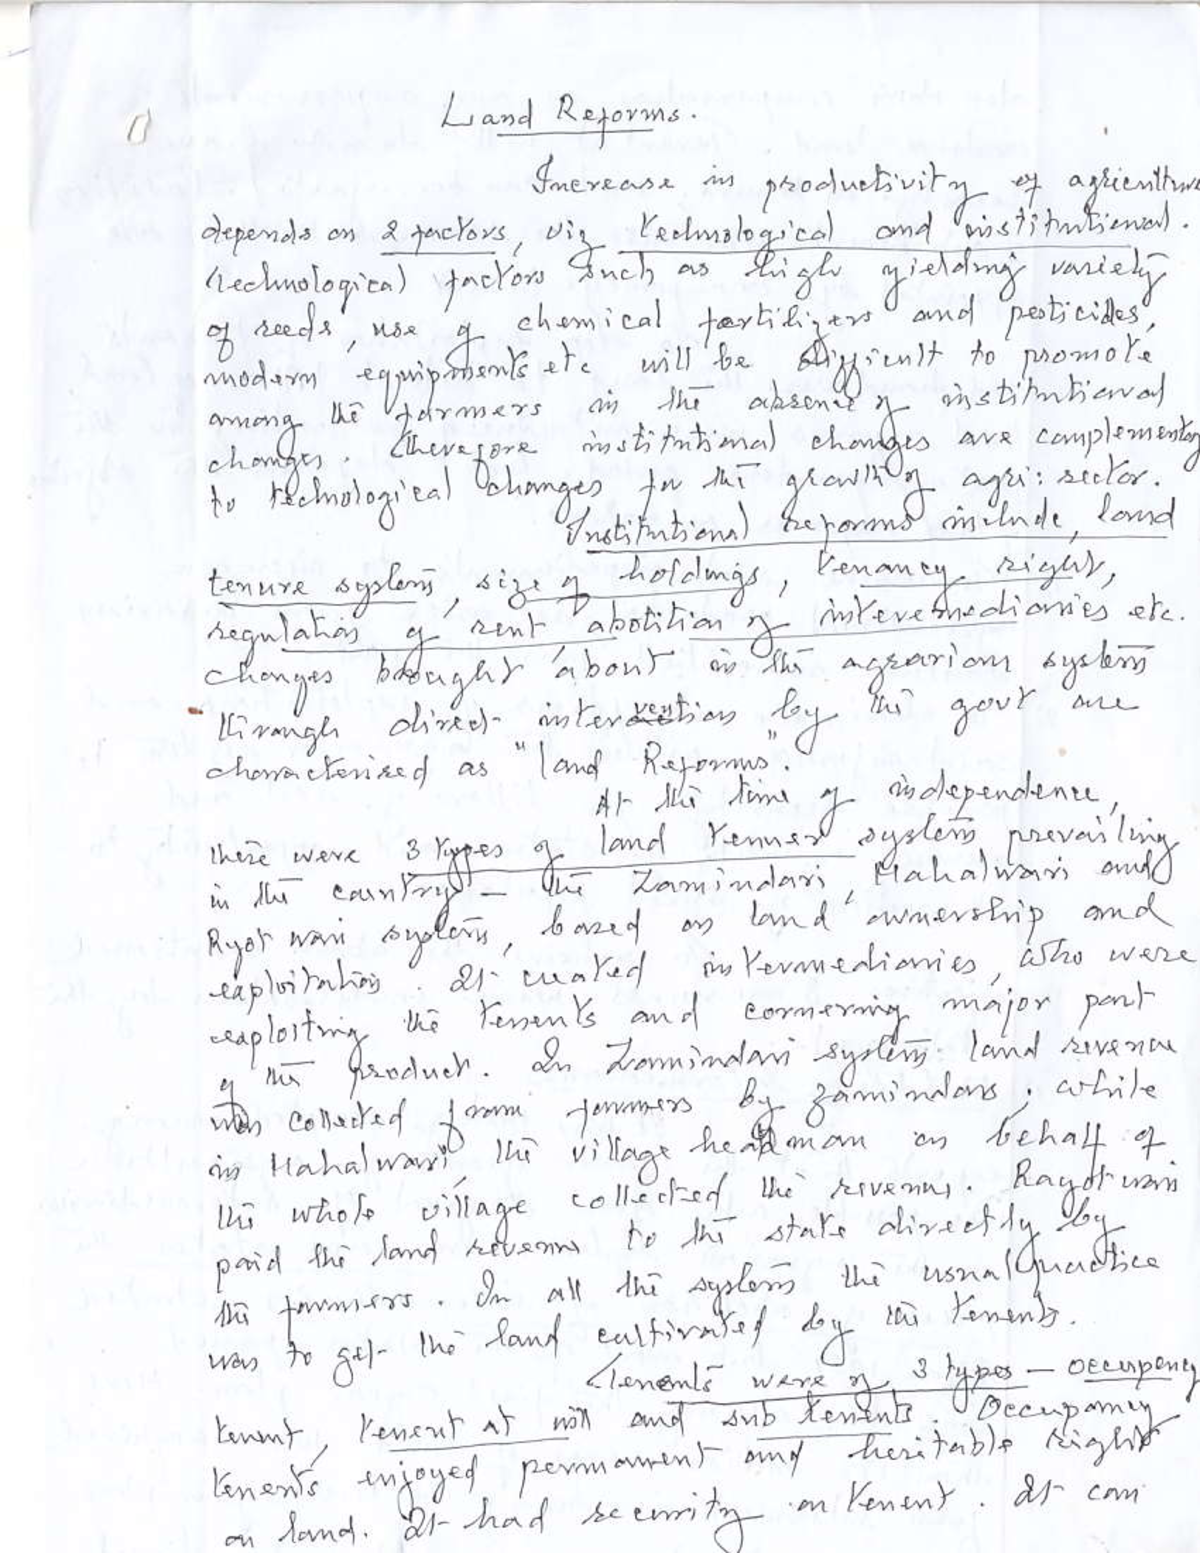 Land Reforms.
Increase in productivity of agriculture
depends on 2 factors, viz technological and institutional.
Technological factors such as high yielding variety
of seeds, use of chemical fertilizers and pesticides,
modern equipments etc will be difficult to promote
among the farmers in the absence of institutional
changes. Therefore institutional changes are complementary
to technological changes for the growth of agri: sector.
Institutional reforms include, land
tenure system, size of holdings, tenancy right,
regulation of rent abolition of interemediaries etc.
changes brought about in the agrarian system
through direct intervention by the govt are
characterised as "land Reforms".
At the time of independence,
there were 3 types of land tenner system prevailing
in the country – the Zamindari, Mahalwari and
Ryot wari system, based on land ownership and
exploitation. It created intermediaries, who were
exploiting the tenents and cornering major part
of the product. In Zamindari system land revenue
was collected from farmers by zamindars, while
in Mahalwari, the village headman on behalf of
the whole village collected the revenue. Rayotwari
paid the land revenue to the state directly by
the farmers. In all the system the usual practice
was to get the land cultivated by the tenents.
Tenents were of 3 types – occupency
tenent, tenent at will and sub tenents. Occupancy
tenents enjoyed permanent and heritable rights
on land. It had security on tenent. It can